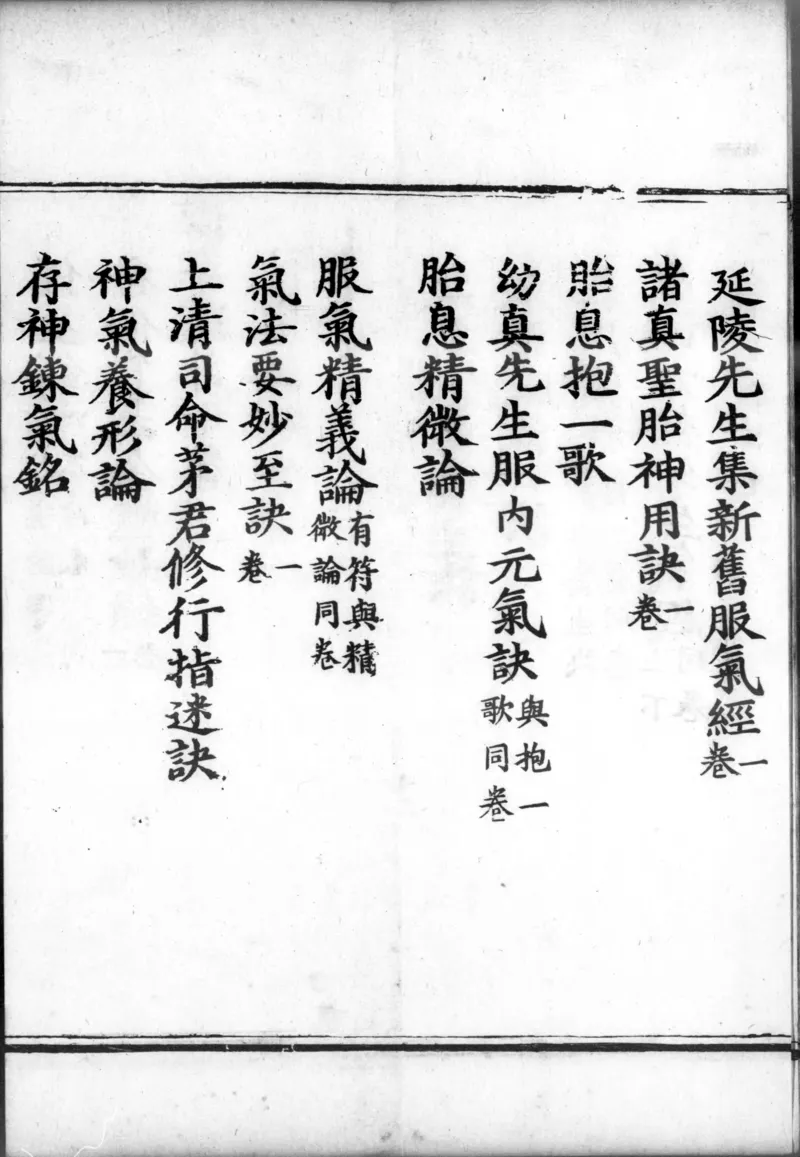 延陵先生集新舊服氣經一卷
諸真聖胎神用訣一卷
胎息抱一歌
幼真先生服内元氣訣與抱一歌同卷
胎息精微論
服氣精義論有符與精微論同卷
氣法要妙至訣一卷
上清司命茅君修行指迷訣
神氣養形論
存神鍊氣銘